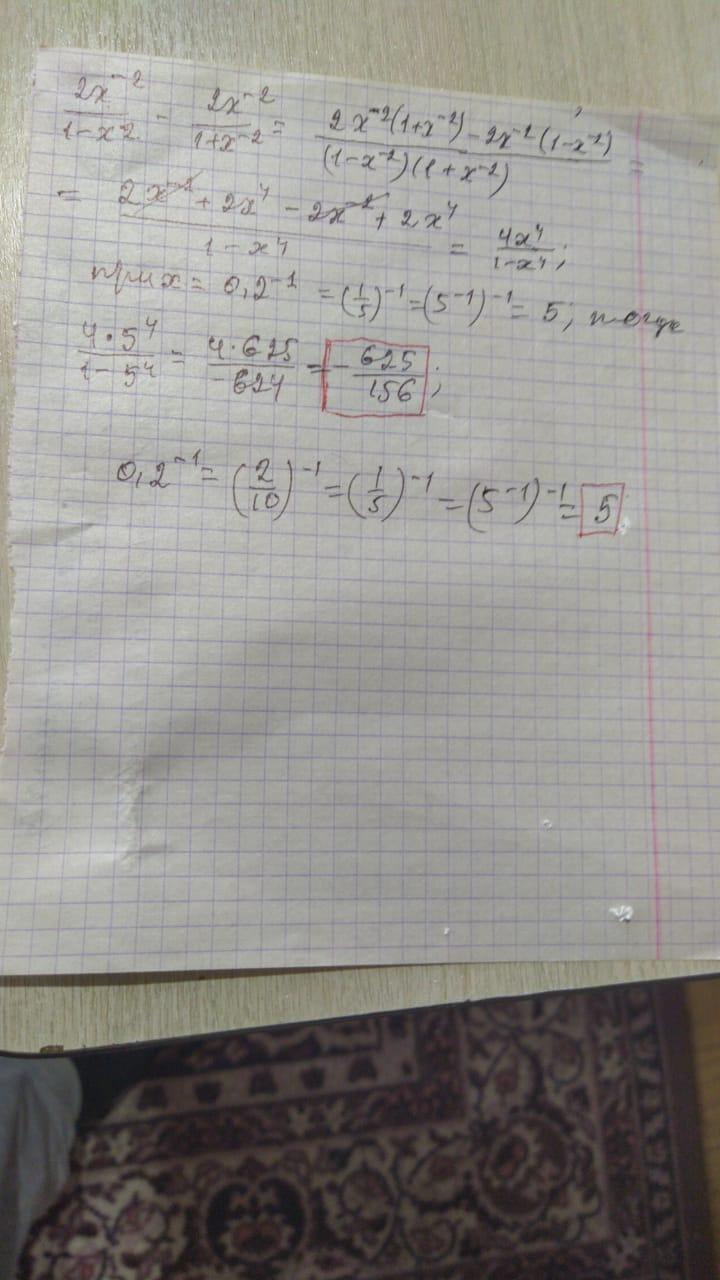 2x⁻²/(1-x⁻²) - 2x⁻²/(1+x⁻²) = (2x⁻²(1+x⁻²) - 2x⁻²(1-x⁻²))/((1-x⁻²)(1+x⁻²)) =
= (2x⁻² + 2x⁴ - 2x⁻² + 2x⁴)/(1-x⁴) = 4x⁴/(1-x⁴);
при x = 0,2⁻¹ = (1/5)⁻¹ = (5⁻¹)⁻¹ = 5; тогда
4·5⁴/(1-5⁴) = 4·625/-624 = -625/156;
0,2⁻¹ = (2/10)⁻¹ = (1/5)⁻¹ = (5⁻¹)⁻¹ = 5